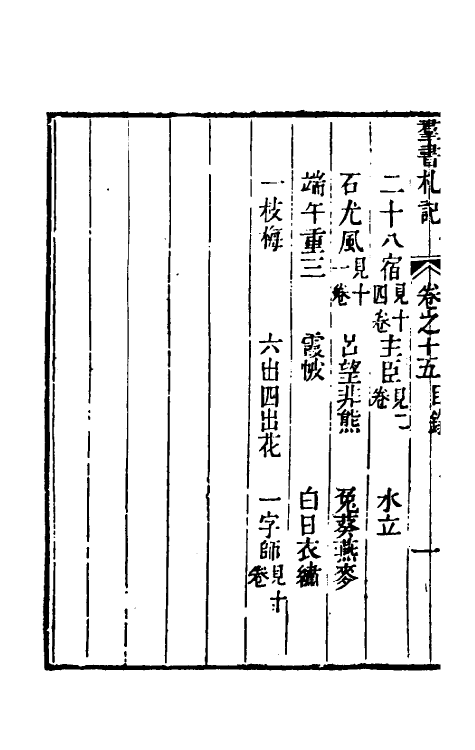 羣書札記 卷之十五目錄 一
二十八宿見十四卷 主臣見二卷 水立
石尤風見十一卷 呂望非熊 兔葵燕麥
端午重三 霞帔 白日衣繡
一枝梅 六出四出花 一字師見十卷